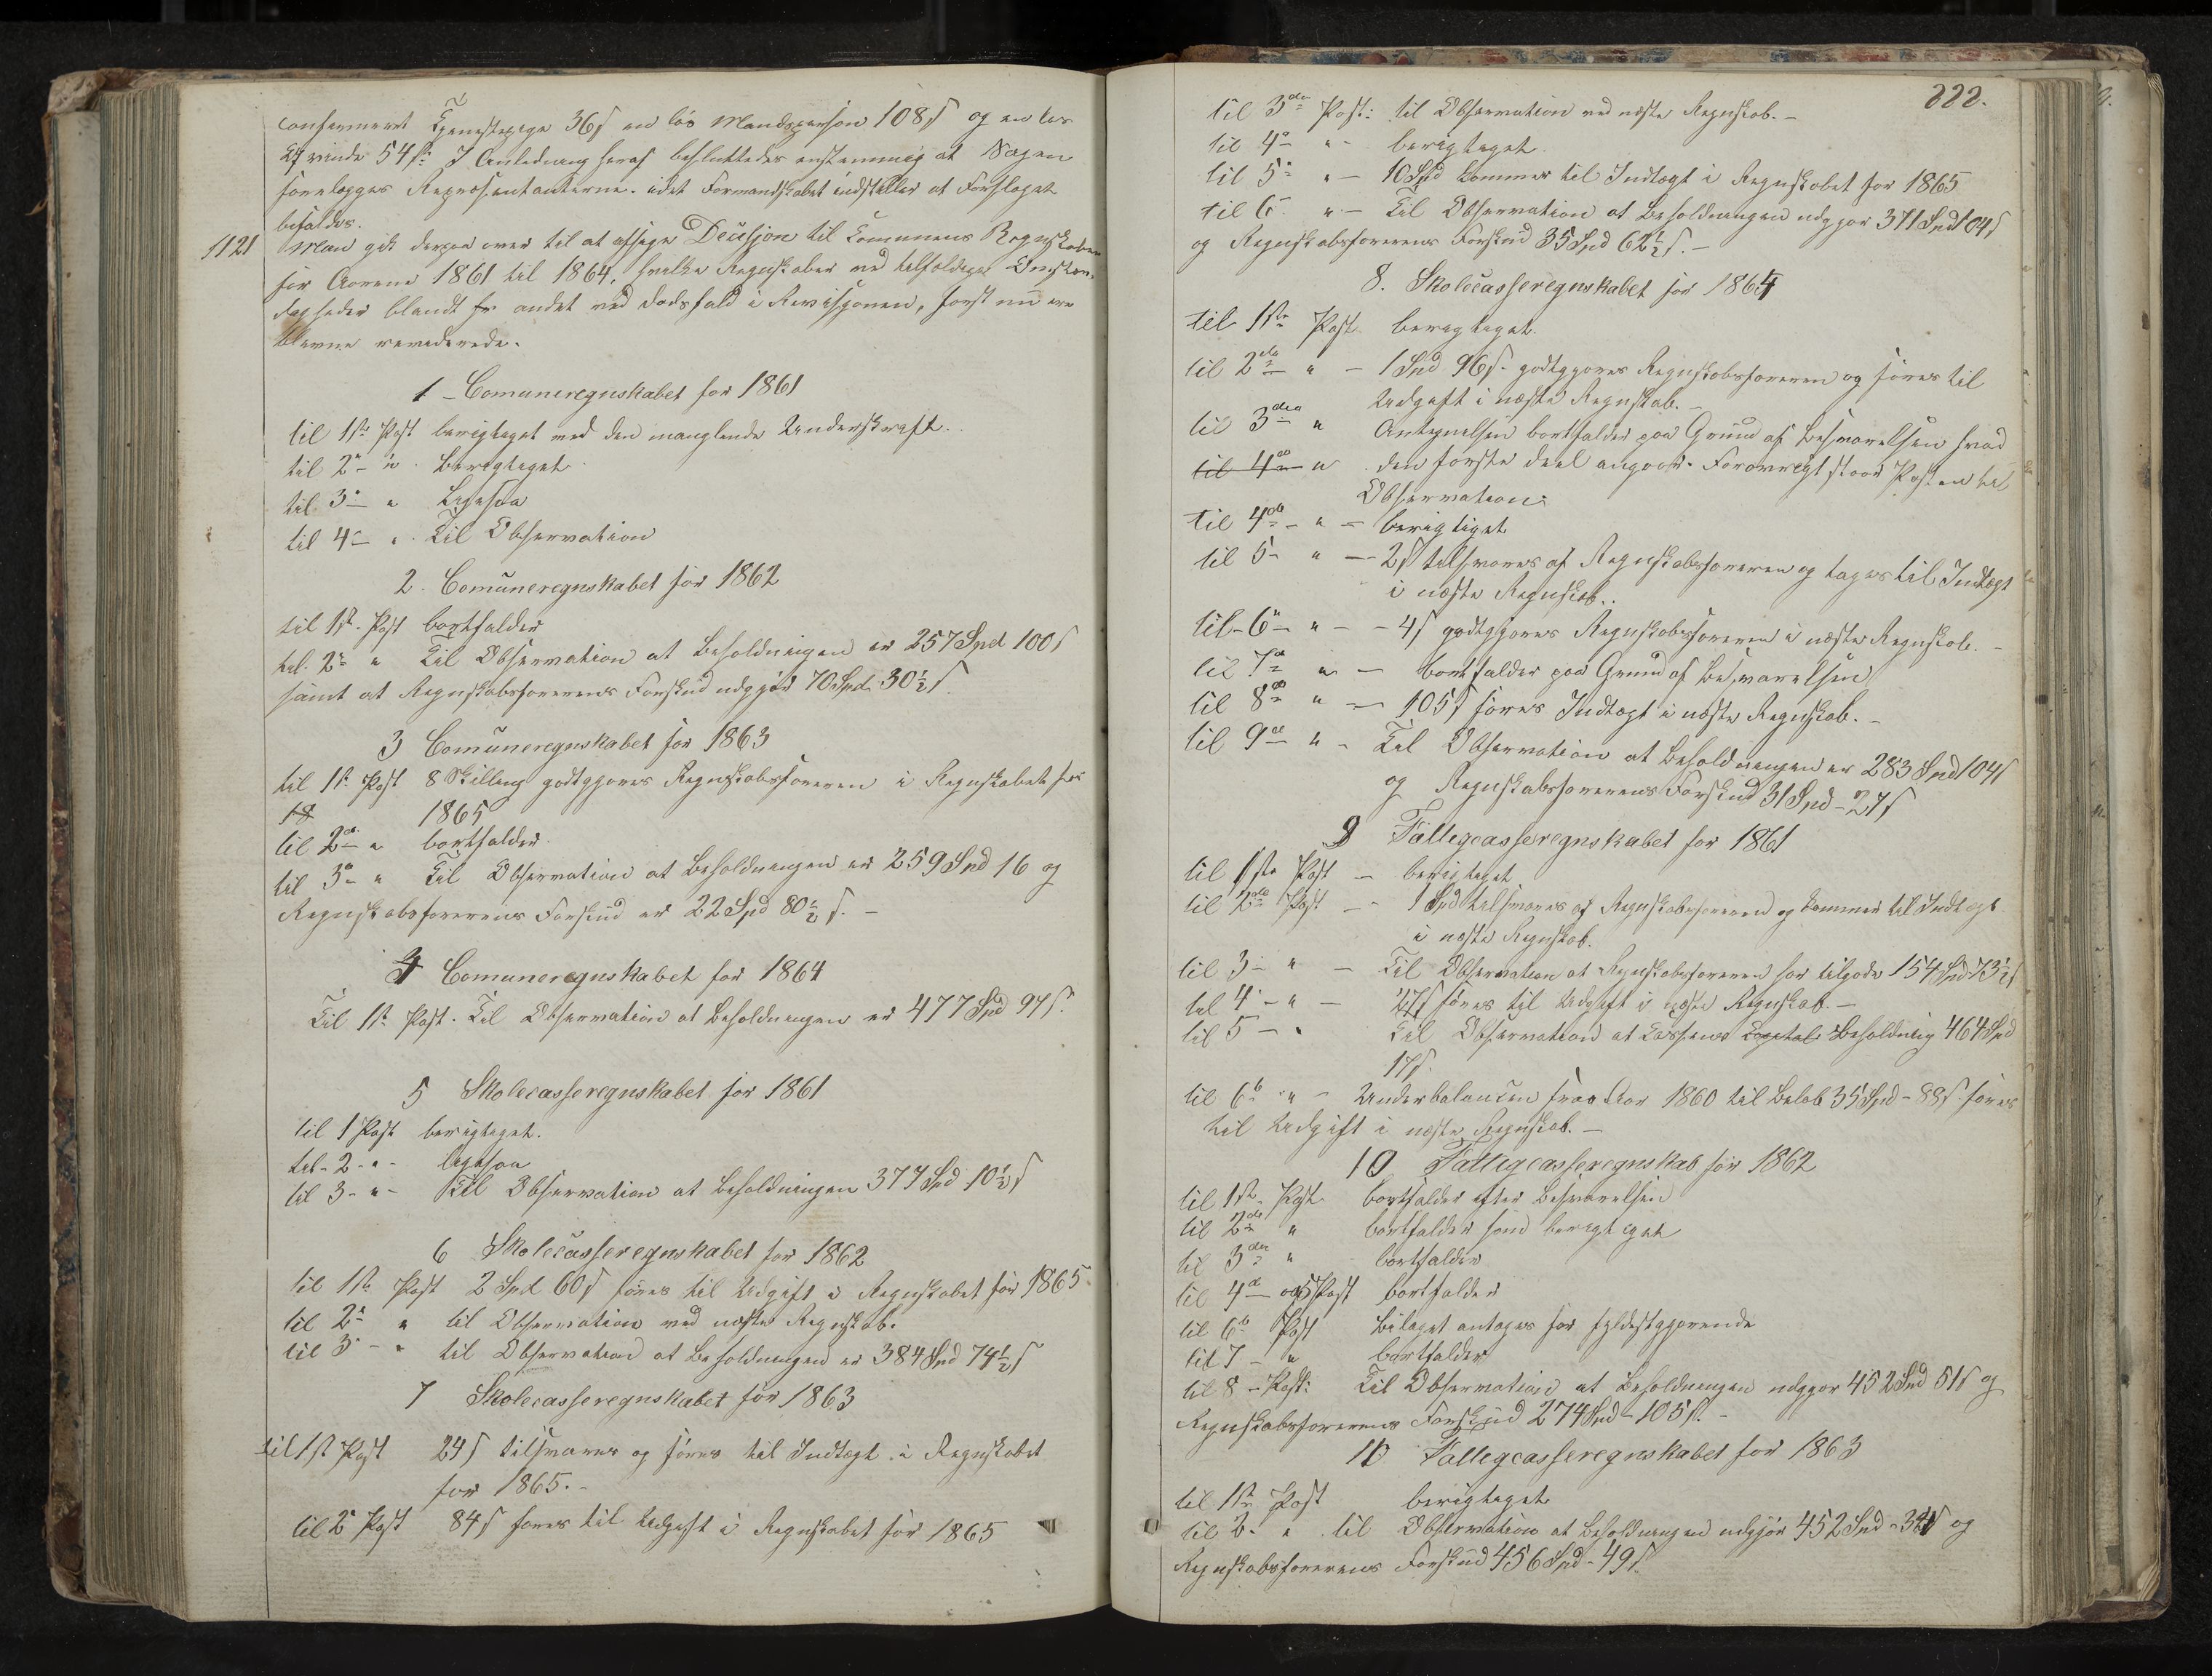 confirmeret Tjenestepige 36 s en løs Mandsperson 108 s og en løs
Qvinde 54 s. I Anledning heraf besluttedes enstemmig at Sagen
forelægges Repræsentanterne. idet Formandskabet indstiller at Forslaget
bifaldes.
1121 Man gik derpaa over til at afsige Decisjon til Comunens Regnskaber
for Aarene 1861 til 1864, hvilke Regnskaber ved tilfældige Omstæn-
digheder blandt andet ved Dødsfald i Revisjonen, først nu ere
blevne reviderede.
1 - Comuneregnskabet for 1861
til 1ste Post berigtiget med den manglende Underskrift.
til 2 - " . Berigtiget
til 3 - " Ligesaa
til 4 - " . Til Observation
2. Comuneregnskabet for 1862
til 1ste Post bortfalder
til 2 - " Til Observation at Beholdningen er 257 Spd 100 s
samt at Regnskabsførerens Forskud udgjør 70 Spd 30½ s.
3 Comuneregnskabet for 1863
til 1ste Post 8 Skilling godtgjøres Regnskabsføreren i Regnskabet for
18 1865
til 2 - " bortfalder.
til 3 - " Til Observation at Beholdningen er 259 Spd 16 og
Regnskabsførerens Forskud er 22 Spd 80½ s. -
4 Comuneregnskabet for 1864
Til 1ste Post. Til Observation at Beholdningen er 477 Spd 97 s.
5 Skolecasseregnskabet for 1861
til 1 Post berigtiget.
til - 2 - " - ligesaa
til 3 - " - Til Observation at Beholdningen 377 Spd 10½ s
6 Skolecasseregnskabet for 1862
til 1ste Post 2 Spd 60 s føres til Udgift i Regnskabet for 1865
til 2 " til Observation ved næste Regnskab.
til 3 - " til Observation at Beholdningen er 384 Spd 74½ s
7 Skolecasseregnskabet for 1863
til 1ste Post 24 s tilsvares og føres til Indtægt i Regnskabet
for 1865. -
til 2 Post 84 s føres til Udgift i Regnskabet for 1865
222.
til 3die Post: til Observation ved næste Regnskab. -
til 4 - " - berigtiget.
til 5 - " - 10 Spd kommer til Indtægt i Regnskabet for 1865
til 6 - " - Til Observation at Beholdningen udgjør 371 Spd 104 s
og Regnskabsførerens Forskud 35 Spd 62½ s. -
8. Skolecasseregnskabet for 1864
til 1ste Post berigtiget.
til 2den " - 1 Spd 96 s. godtgjøres Regnskabsføreren og føres til
Udgift i næste Regnskab. -
til 3die " Antegnelsen bortfalder paa Grund af Besvarelsen hvad
til 4de " den første Deel angaar. Forøvrigt staar Posten til
Observation.
til 4de - " - berigtiget
til 5 - " - 2 s tilsvares af Regnskabsføreren og tages til Indtægt
i næste Regnskab..
til - 6 - " - - 4 s godtgjøres Regnskabsføreren i næste Regnskab. -
til 7de " - bortfalder paa Grund af Besvarelsen
til 8de " - 105 s føres Indtægt i næste Regnskab. -
til 9de " - Til Observation at Beholdningen er 283 Spd 104 s
og Regnskabsførerens Forskud 31 Spd - 27 s
9 Fattigcasseregnskabet for 1861
til 1ste Post - berigtiget
til 2den Post - - 1 Spd tilsvares af Regnskabsføreren og kommer til Indtægt
i næste Regnskab.
til 3 - " - Til Observation at Regnskabsføreren har tilgode 154 Spd 73½ s
til 4 - " - føres til Udgift i næste Regnskab. -
til 5 - " Til Observation at Cassens Capital Beholdning 464 Spd
17 s.
til 6 " - Underbalancen fra Aar 1860 til Beløb 35 Spd - 88 s. føres
til Udgift i næste Regnskab. -
10 Fattigcasseregnskab for 1862
til 1ste Post bortfalder efter Besvarelsen
til 2den " bortfalder som berigtiget
til 3die " bortfalder
til 4de og 5 Post bortfalder
til 6 Post Bilaget antages for fyldestgjørende
til 7 - " bortfalder
til 8 - Post: Til Observation at Beholdningen udgjør 452 Spd 51 s og
Regnskabsførerens Forskud 274 Spd - 105 s. -
11 Fattigcasseregnskabet for 1863
til 1ste Post berigtiget
til 2 - " . til Observation at Beholdningen udgjør 452 Spd - og
Regnskabsførerens Forskud 456 Spd - 49 s.